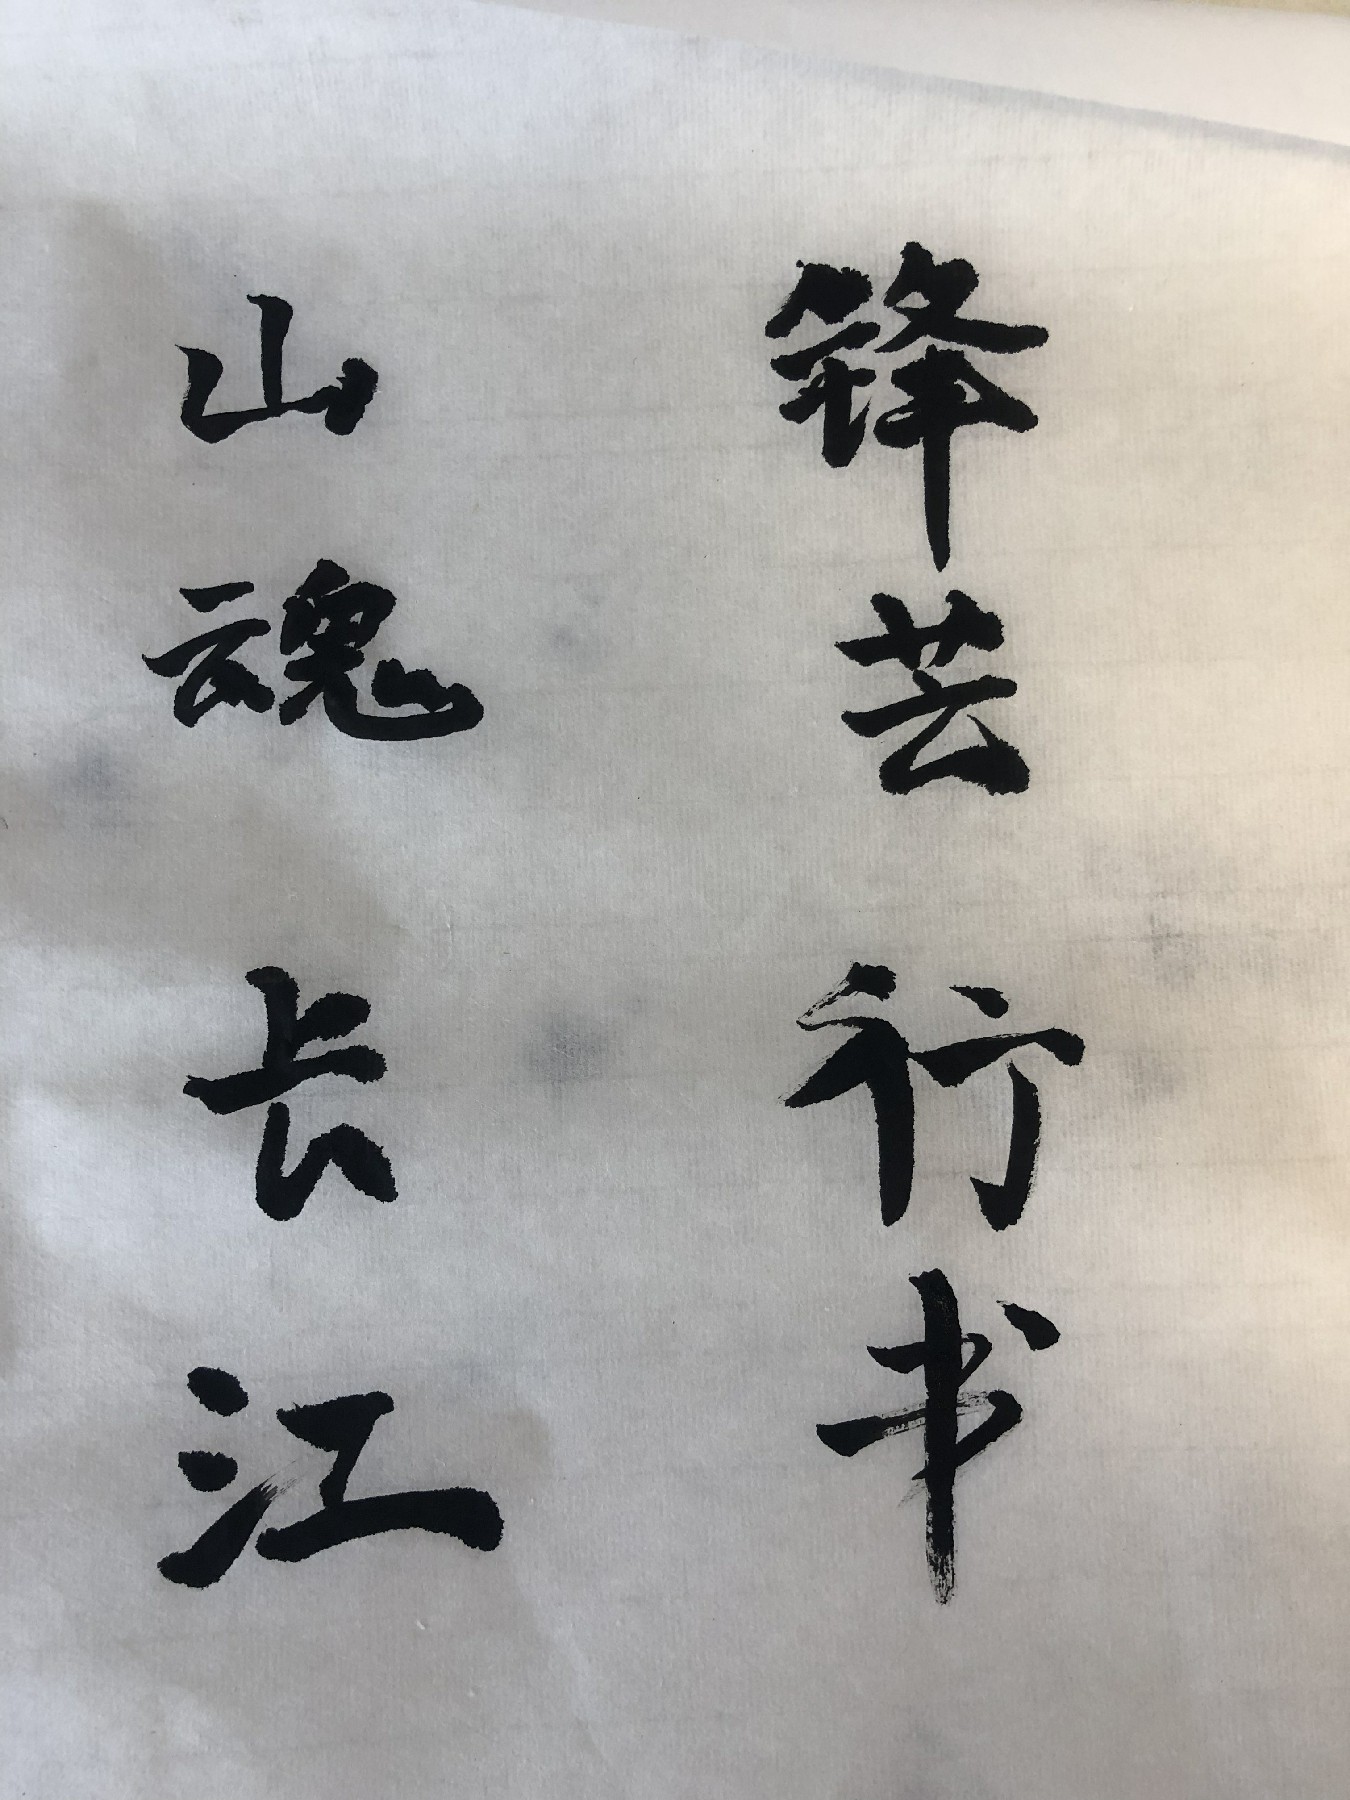 锋芸行书
山魂长江